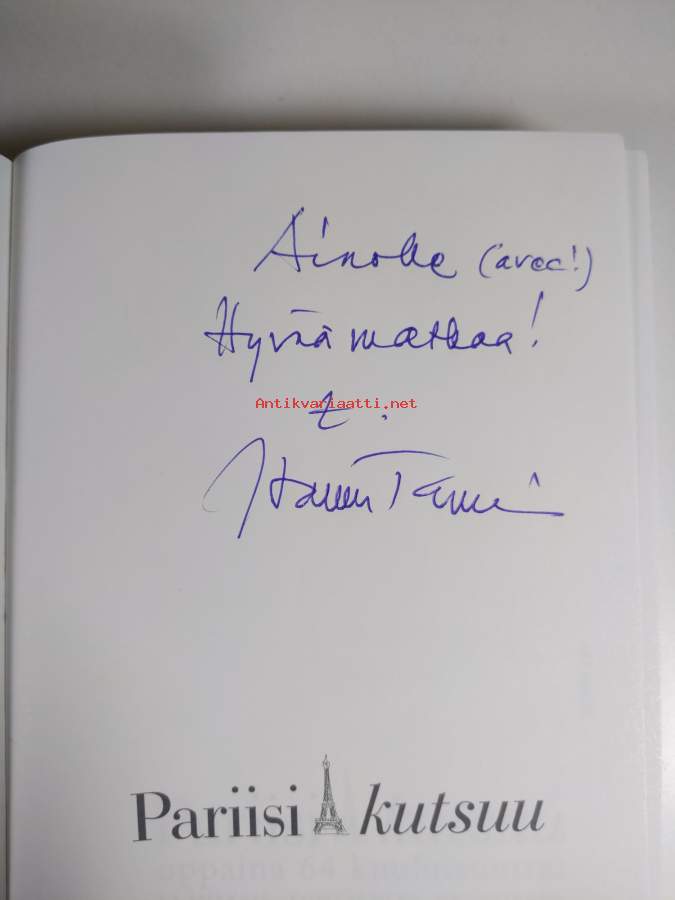 Ainolle (avec!)
Hyvää matkaa!
Antikvariaatti.net
t.
Pariisi kutsuu